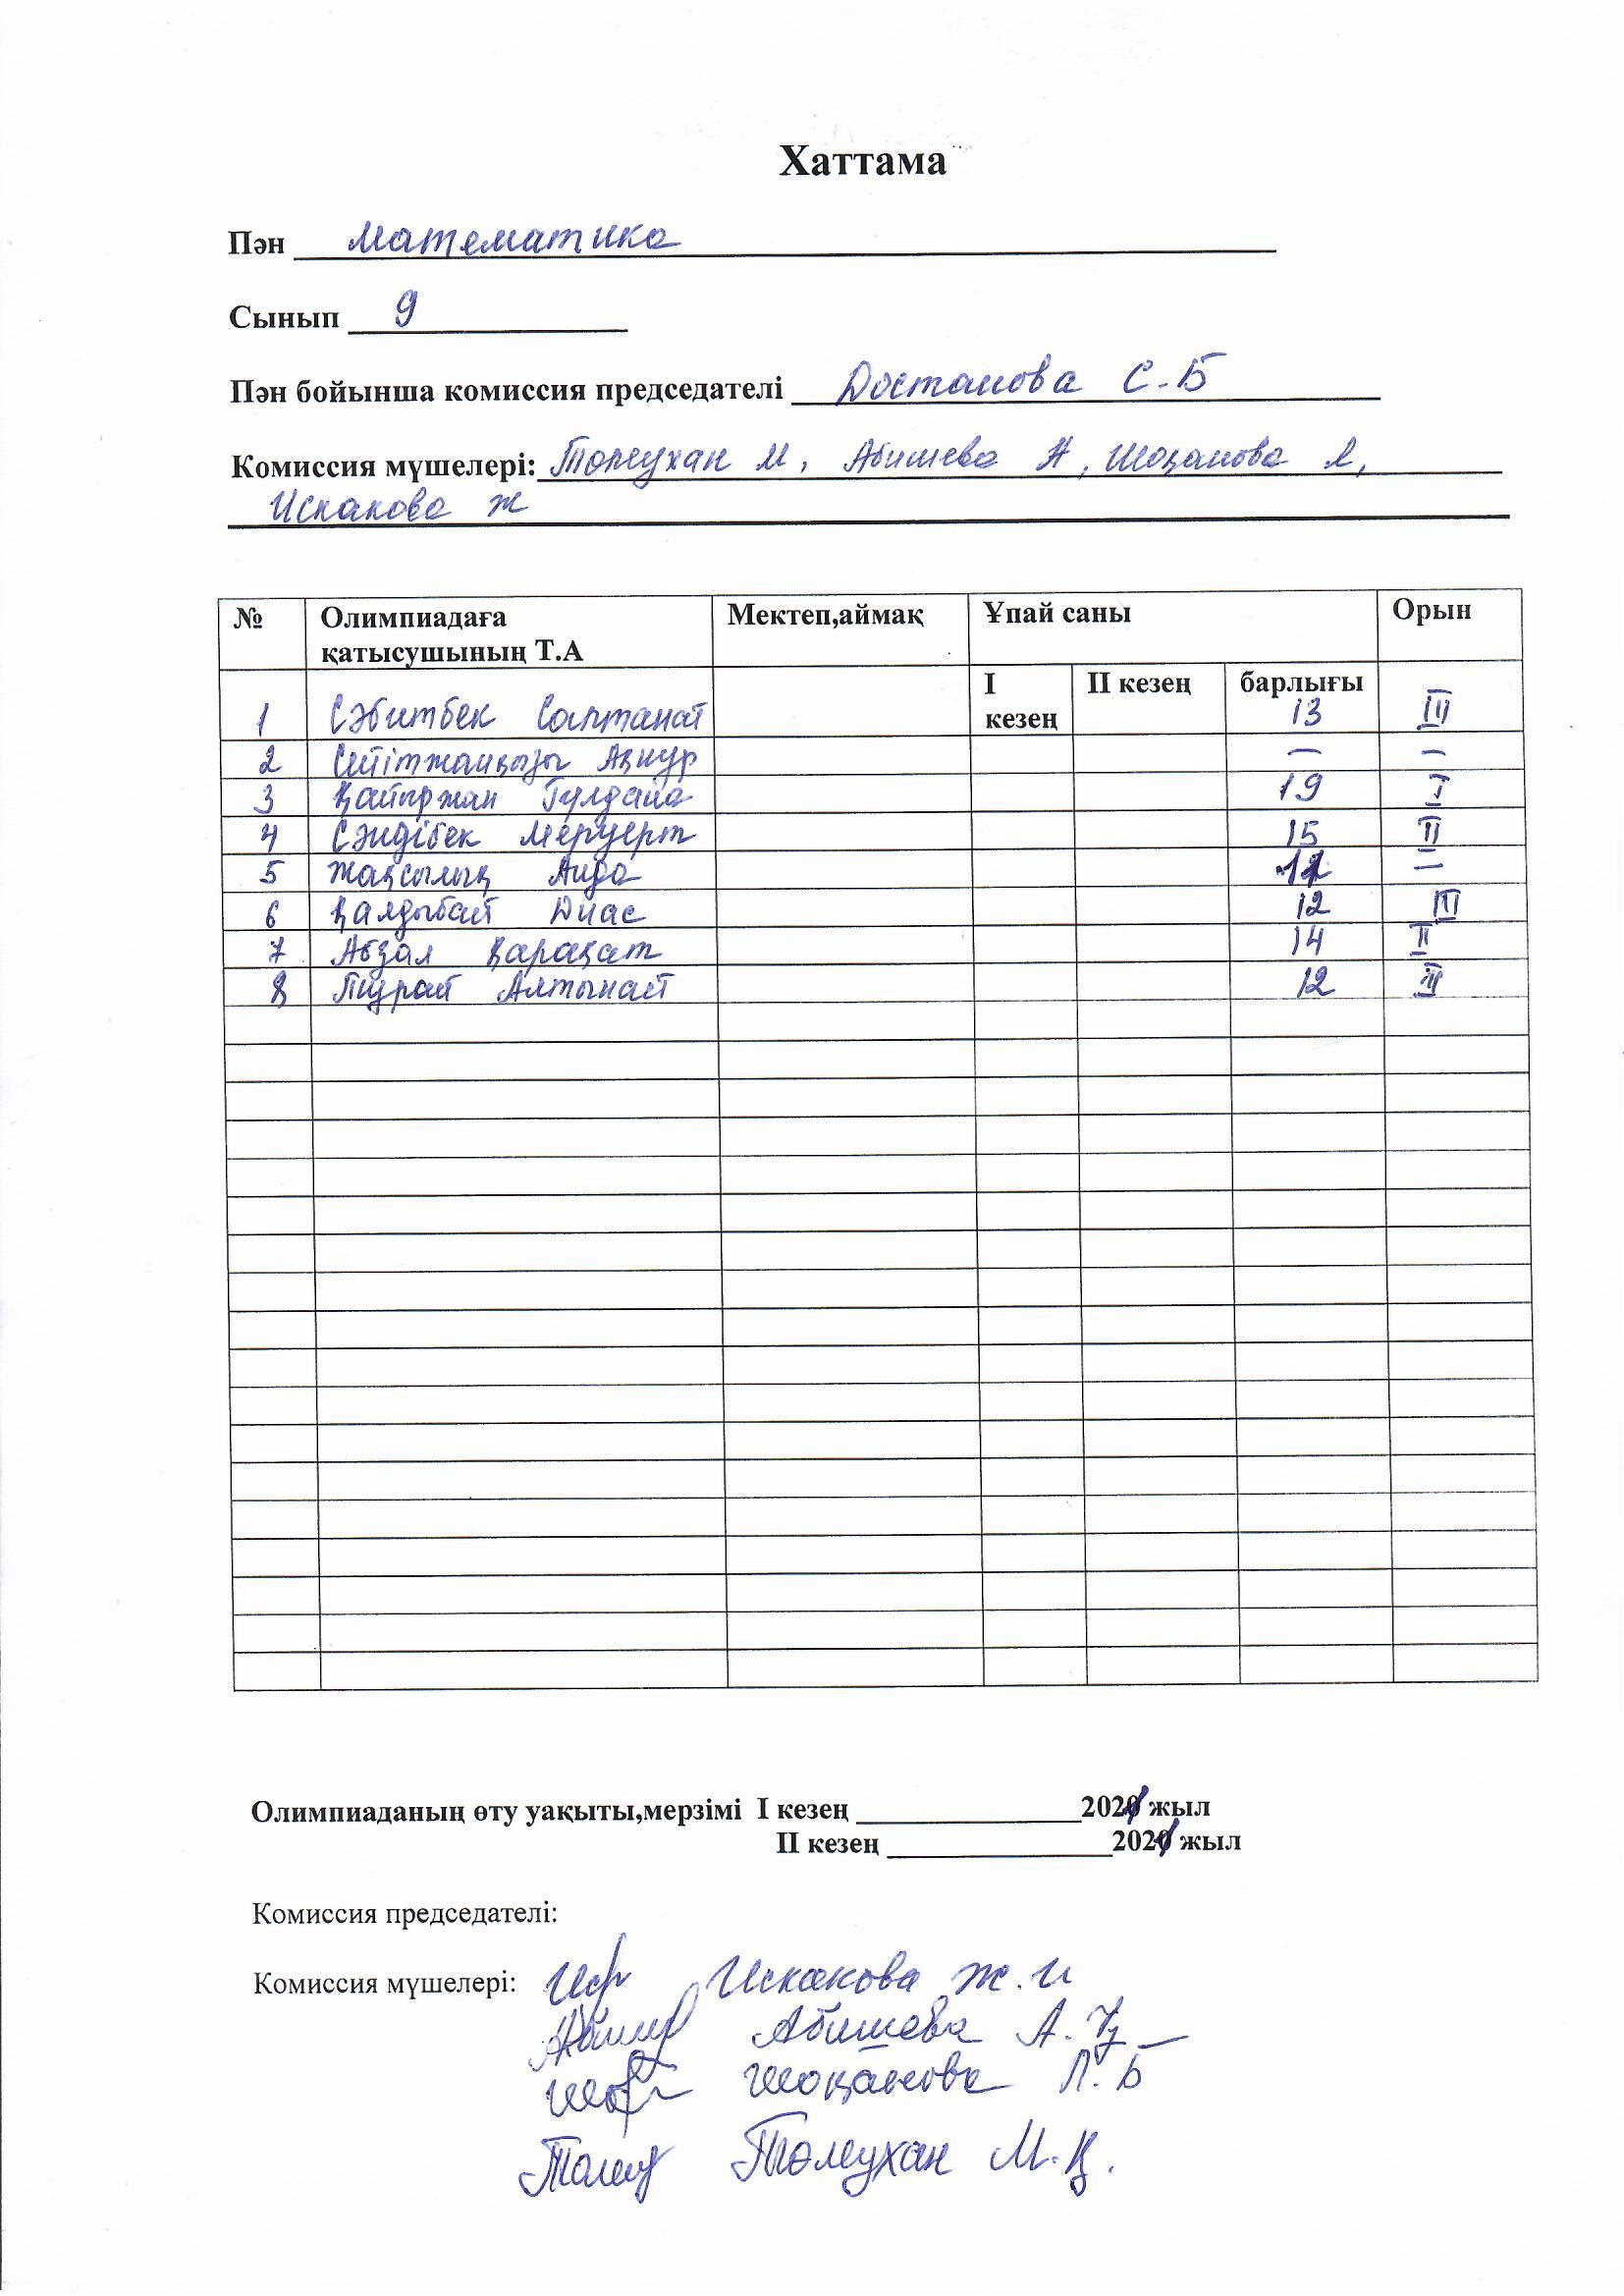 Хаттама
Пән математика
Сынып 9
Пән бойынша комиссия председателі Достанова С.Б
Комиссия мүшелері: Төлеухан М, Абишева А, Шоқанова Л,
Искакова Ж
№ Олимпиадаға қатысушының Т.А Мектеп,аймақ Ұпай саны Орын
I кезең II кезең барлығы
1 Сәбитбек Салтанат 13 III
2 Сейітжанқызы Ақнұр — —
3 Қайыржан Гүлдана 19 I
4 Сәндібек Меруерт 15 II
5 Жақсылық Аида 11 —
6 Қалдыбай Диас 12 III
7 Абзал Қарақат 14 II
8 Алтынай 12 III
Олимпиаданың өту уақыты,мерзімі I кезең 2021 жыл
II кезең 2021 жыл
Комиссия председателі:
Комиссия мүшелері: Искакова Ж.И
Абишева А.
Шоқанова Л.Б
Төлеухан М.Қ.